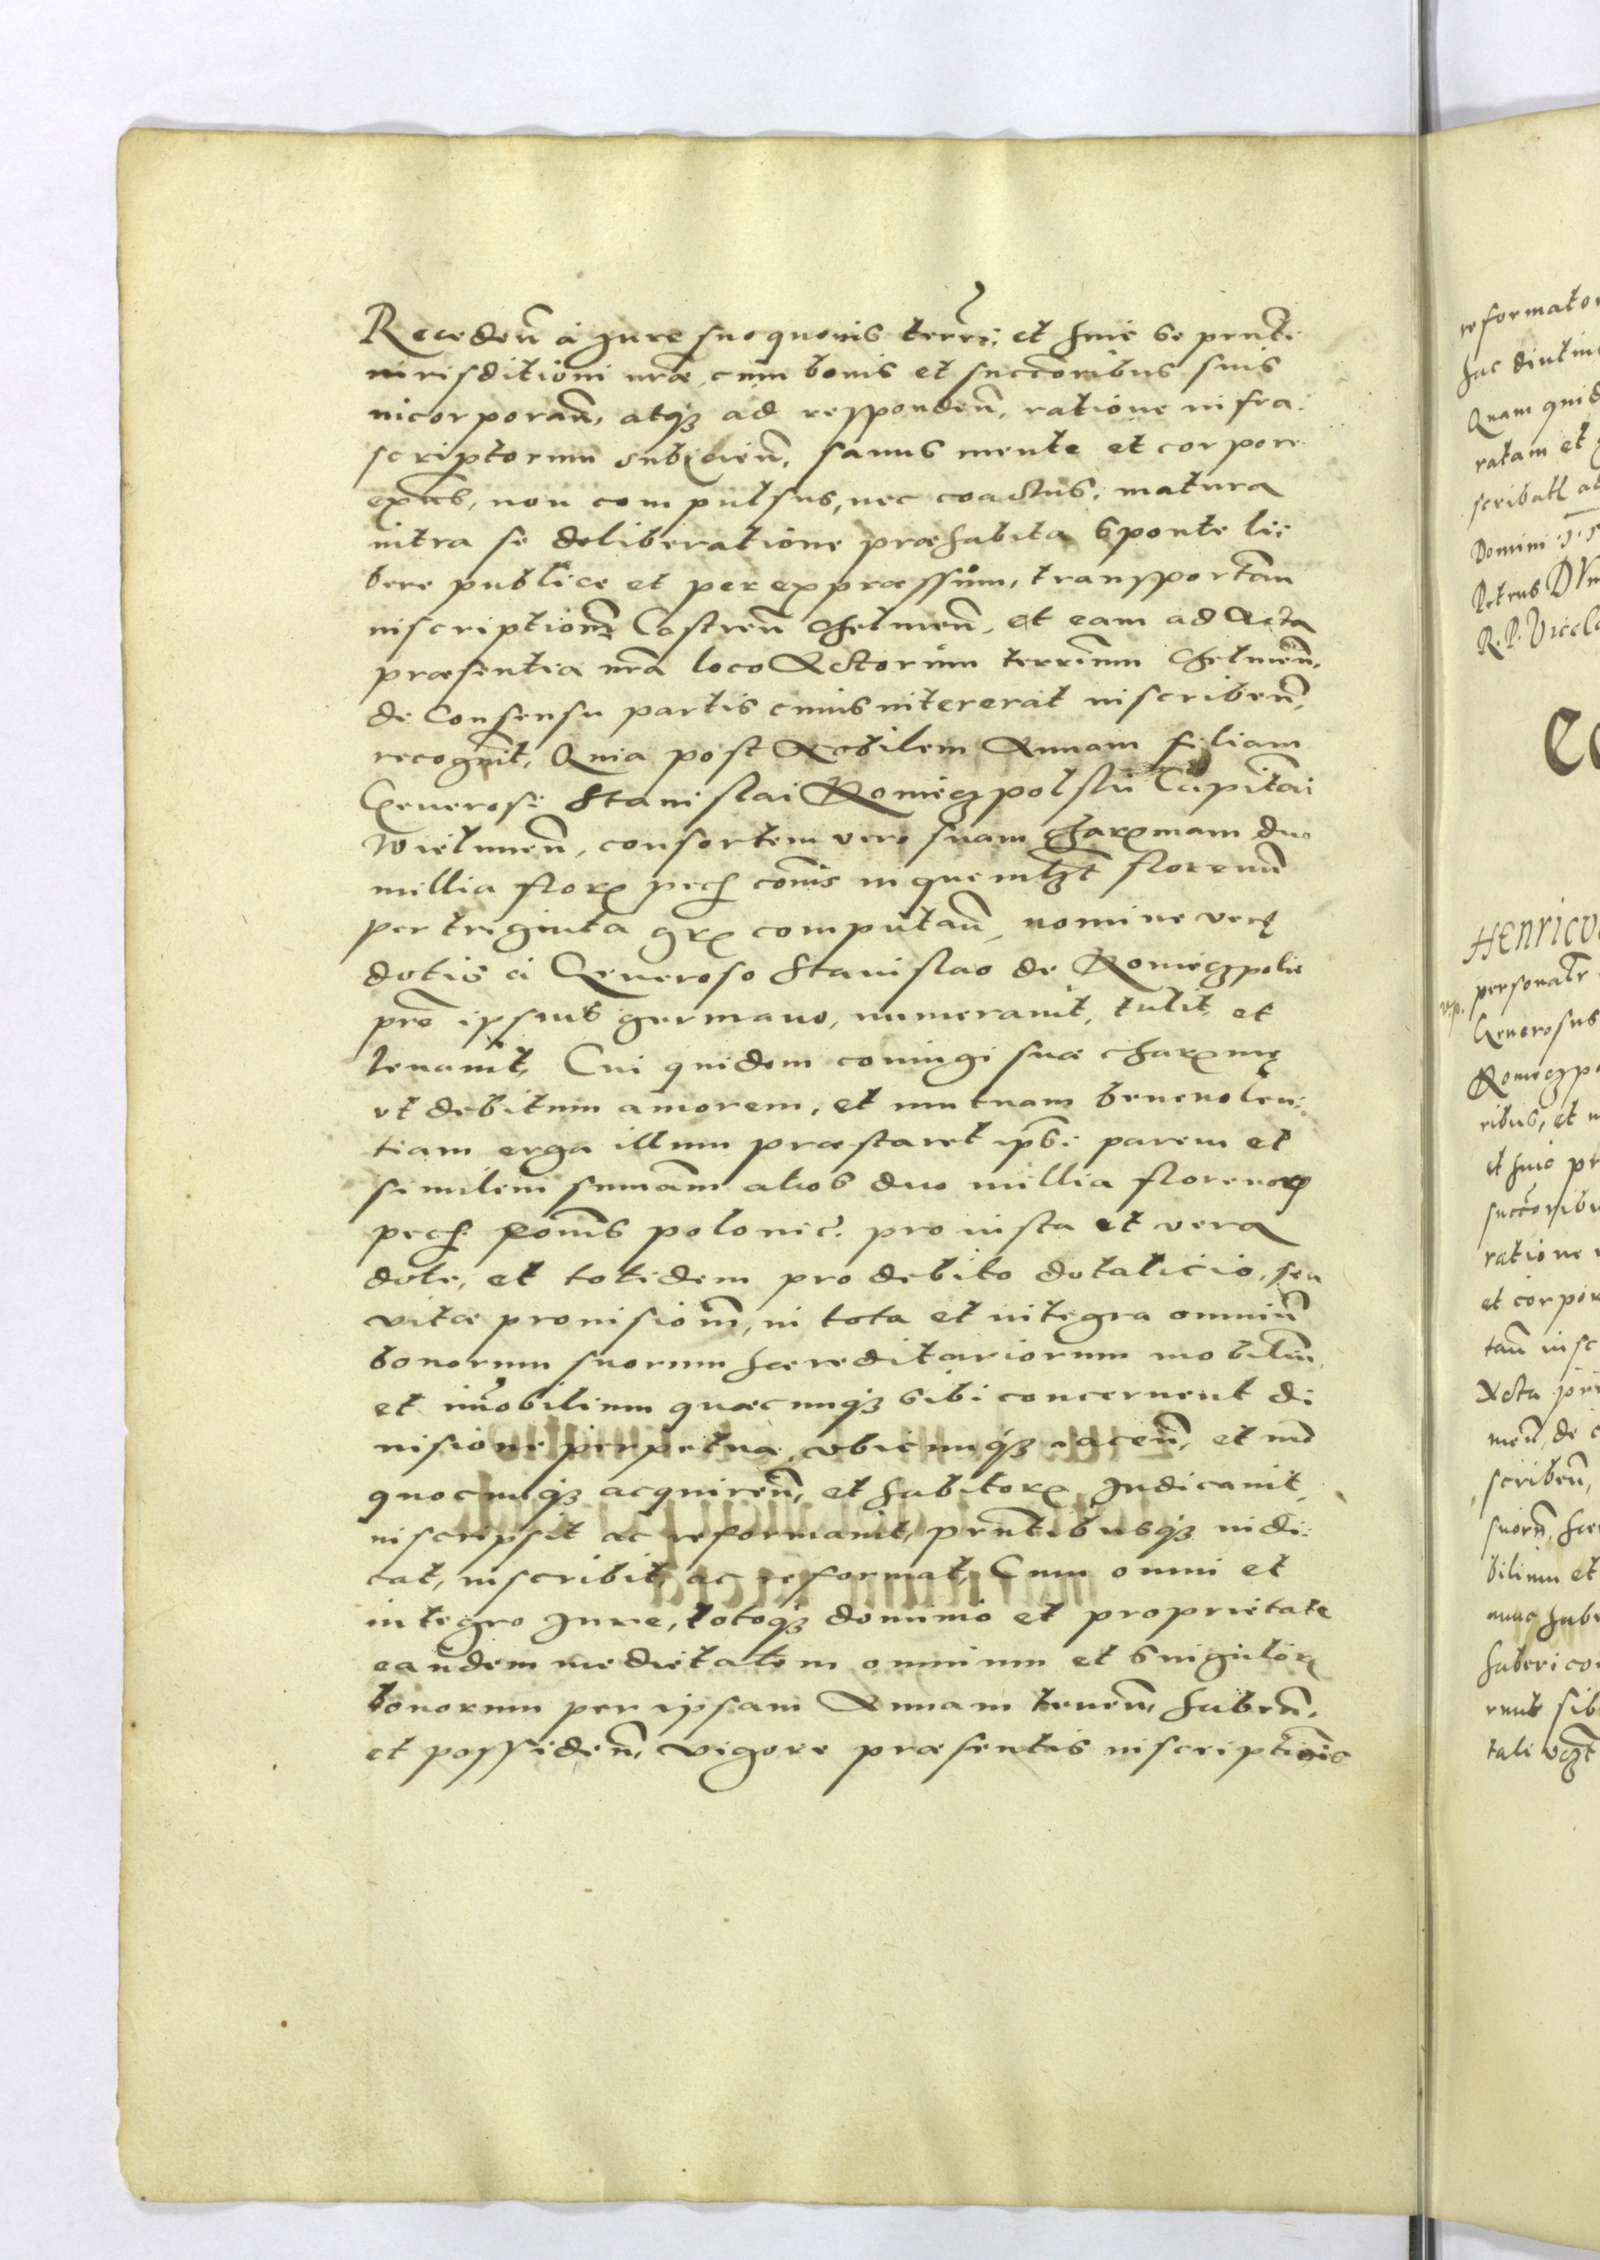 Recedeñ à Jure suo quouis terri: et huic se pñti
iurisditioni nr̃ae, cum bonis et succ̃oribus suis
incorporañ, atq3 ad respondeñ, ratione infra
scriptorum subycieñ, sanus mente et corpore
exñs, non compulsus, nec coactus, matura
intra se deliberatione præhabita sponte li:
bere publice et per expræssum, transportam
inscriptionẽ Castreñ Chelmeñ, et eam ad Acta
præsentia nr̃a loco Actorum terrium Chelmeñ,
de Consensu partis cuius intererat inscribeñ,
recognuit, Quia post Nobilem Annam filiam
Generosi Stanislai Koniecpolskii Capitai
Wieluneñ, consortem vero suam charxmam duo
millia florx pech coĩs in quemlz3t florenũ
per triginta grx computañ, nomine verę
dotis à Generoso Stanislao de Koniecpolie
pr̃e ipsius germano, numerauit, tulit et
leuauit, Cui quidem coniugi suæ charxmę
vt debitum amorem, et mutuam beneuolen:
tiam erga illum præstaret ips̃i parem et
similem summam alios duo millia florenorx
pech. coĩs polonic. pro iusta et vera
dote, et totidem pro debito dotalicio, seu
vitæ prouisioñe, in tota et integra omniũ
bonorum suorum hæreditariorum mobiliũ
et im̃obilium quæcunq3 sibi concernent di
uisione perpetua, vbicunq3 iaceñ, et mõ
quocunq3 acquireñ, et habitorx Indicauit,
inscripsit ac reformauit, pr̃ntibusq3 indi:
cat, inscribit, ac reformat, Cum omni et
integro Jure, totoq3 dominio et proprietate
eandem medietatem omnium et singulorx
bonorum per ipsam Annam teneñ, habeñ,
et possideñ, vigore præsentis inscriptiõnis
reformator
hac diutin
Quam quid
ratam et
Domini
Petrus
HENRICV
v.p.
personatr
Generosus
Koniecpo
ribus, et
et huic pr
succ̃oribu
ratione
et corpor
tañ insc
Acta pr
meñ, de c
scribeñ,
suorũ, hæ
bilium et
nunc habe
haberi co
rent sib
tali